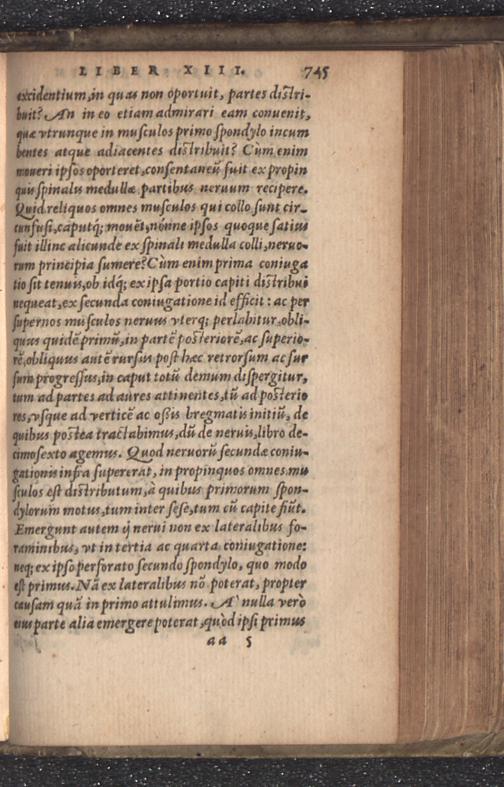 LIBER XIII. 745
excidentium, in quas non oportuit, partes distri-
buit? An in eo etiam admirari eam conuenit,
quæ vtrunque in musculos primo spondylo incum
bentes atque adiacentes distribuit? Cùm enim
moueri ipsos oporteret, consentaneũ fuit ex propin
quis spinalis medullæ partibus neruum recipere.
Quid reliquos omnes musculos qui collo sunt cir-
cunfusi, caputq; mouẽt, nónne ipsos quoque satius
fuit illinc alicunde ex spinali medulla colli, neruo-
rum principia sumere? Cùm enim prima coniuga
tio sit tenuis, ob idq; ex ipsa portio capiti distribui
nequeat, ex secunda coniugatione id efficit: ac per
supernos musculos neruus vterq; perlabitur, obli-
quus quidẽ primũ, in partẽ posteriorẽ, ac superio-
rẽ, obliquus autẽ rursus post hæc retrorsum ac sur
sum progressus, in caput totũ demum dispergitur,
tum ad partes ad aures attinentes, tũ ad posterio
res, vsque ad verticẽ ac ossis bregmatis initiũ, de
quibus postea tractabimus, dũ de neruis, libro de-
cimosexto agemus. Quod neruorũ secundæ coniu-
gationis infra supererat, in propinquos omnes mu
sculos est distributum, à quibus primorum spon-
dylorum motus, tum inter sese, tum cũ capite fiũt.
Emergunt autem ij nerui non ex lateralibus fo-
raminibus, vt in tertia ac quarta coniugatione:
neq; ex ipso perforato secundo spondylo, quo modo
est primus. Nã ex lateralibus nõ poterat, propter
causam quã in primo attulimus. A' nulla verò
eius parte alia emergere poterat, quòd ipsi primus
aa 5